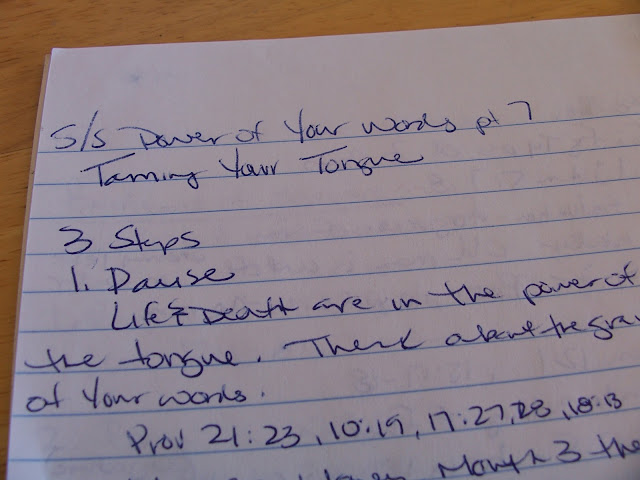 S/S Power of Your Words pt 7
Taming Your Tongue
3 Steps
1. Pause
Life & Death are in the power of
the tongue. Think about the gra
of your words.
Prov 21:23, 10:19, 17:27,28, 18:13
Month 3 the